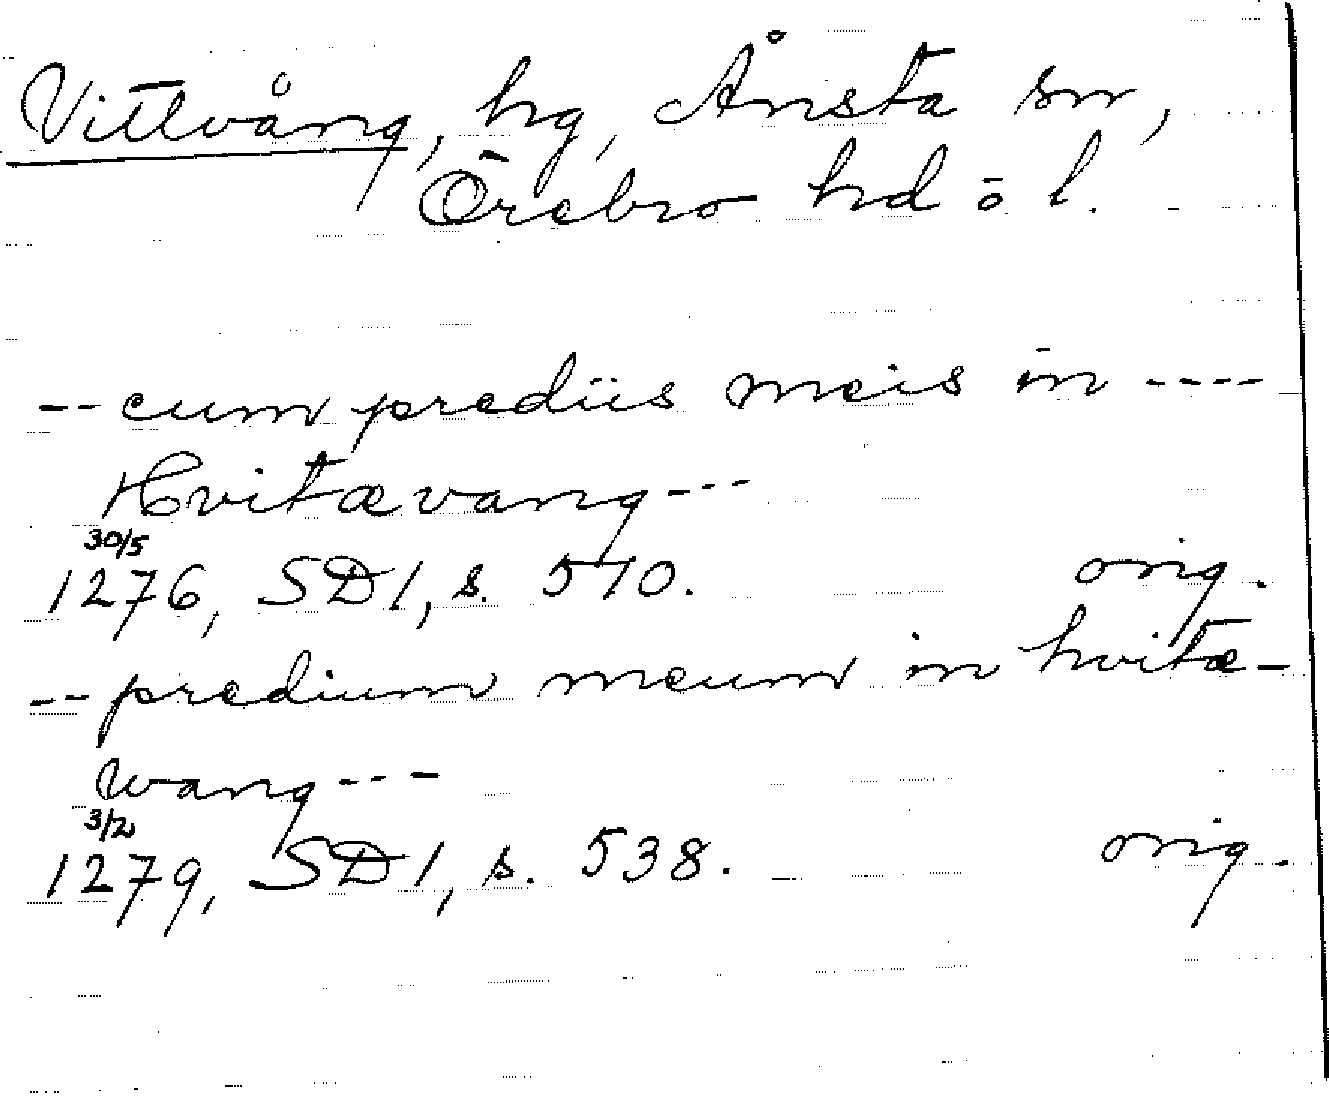 Vittvång, hg, Ånsta sn,
Örebro hd ö l.
-- cum prediis meis in ----
Hvitævang ---
30/5
1276, SD1, s. 510. orig.
-- predium meum in hvitæ-
wang ---
3/2
1279, SD1, s. 538. orig.